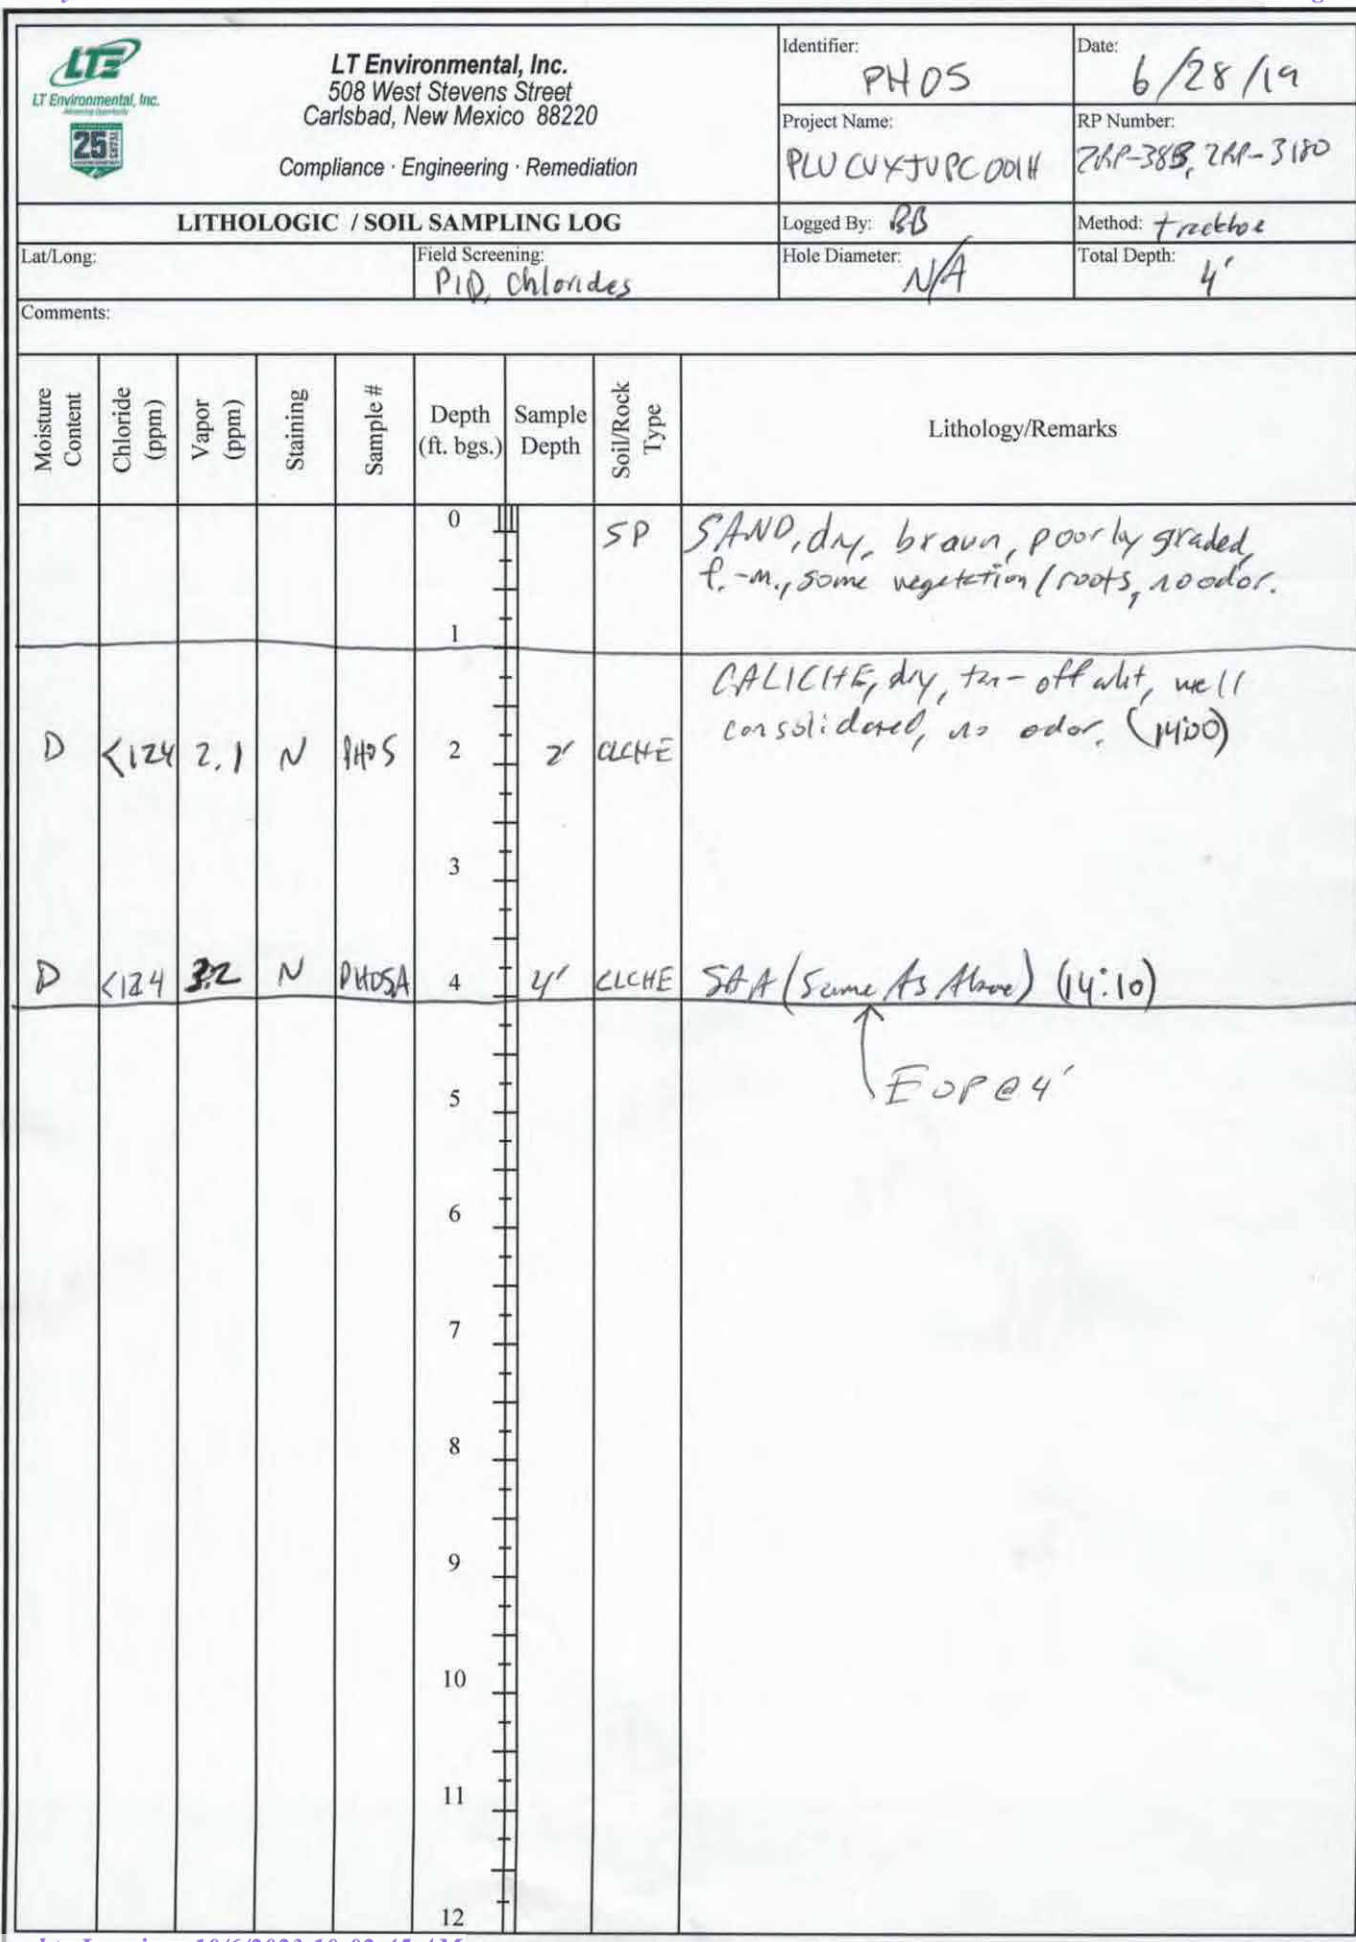 LTE
LT Environmental, Inc.
25 YEARS
LT Environmental, Inc.
508 West Stevens Street
Carlsbad, New Mexico 88220
Compliance · Engineering · Remediation
Identifier:
PH05
Date:
6/28/19
Project Name:
PLU CVX JV PC 001H
RP Number:
2RP-3180
LITHOLOGIC / SOIL SAMPLING LOG
Logged By: BB
Method: trackhoe
Lat/Long:
Field Screening:
PID, Chlorides
Hole Diameter:
N/A
Total Depth:
4'
Comments:
Moisture Content
Chloride (ppm)
Vapor (ppm)
Staining
Sample #
Depth (ft. bgs.)
Sample Depth
Soil/Rock Type
Lithology/Remarks
0 SP SAND, dry, brown, poorly graded,
f.-m., some vegetation/roots, no odor.
1
CALICHE, dry, tan-off whit, well
consolidated, no odor. (14:00)
D <124 2.1 N PH05 2 2' CLCHE
3
D <124 3.2 N PH05A 4 4' CLCHE SAA (Same As Above) (14:10)
EOP@4'
5
6
7
8
9
10
11
12
10/6/2023 10:02:45 AM